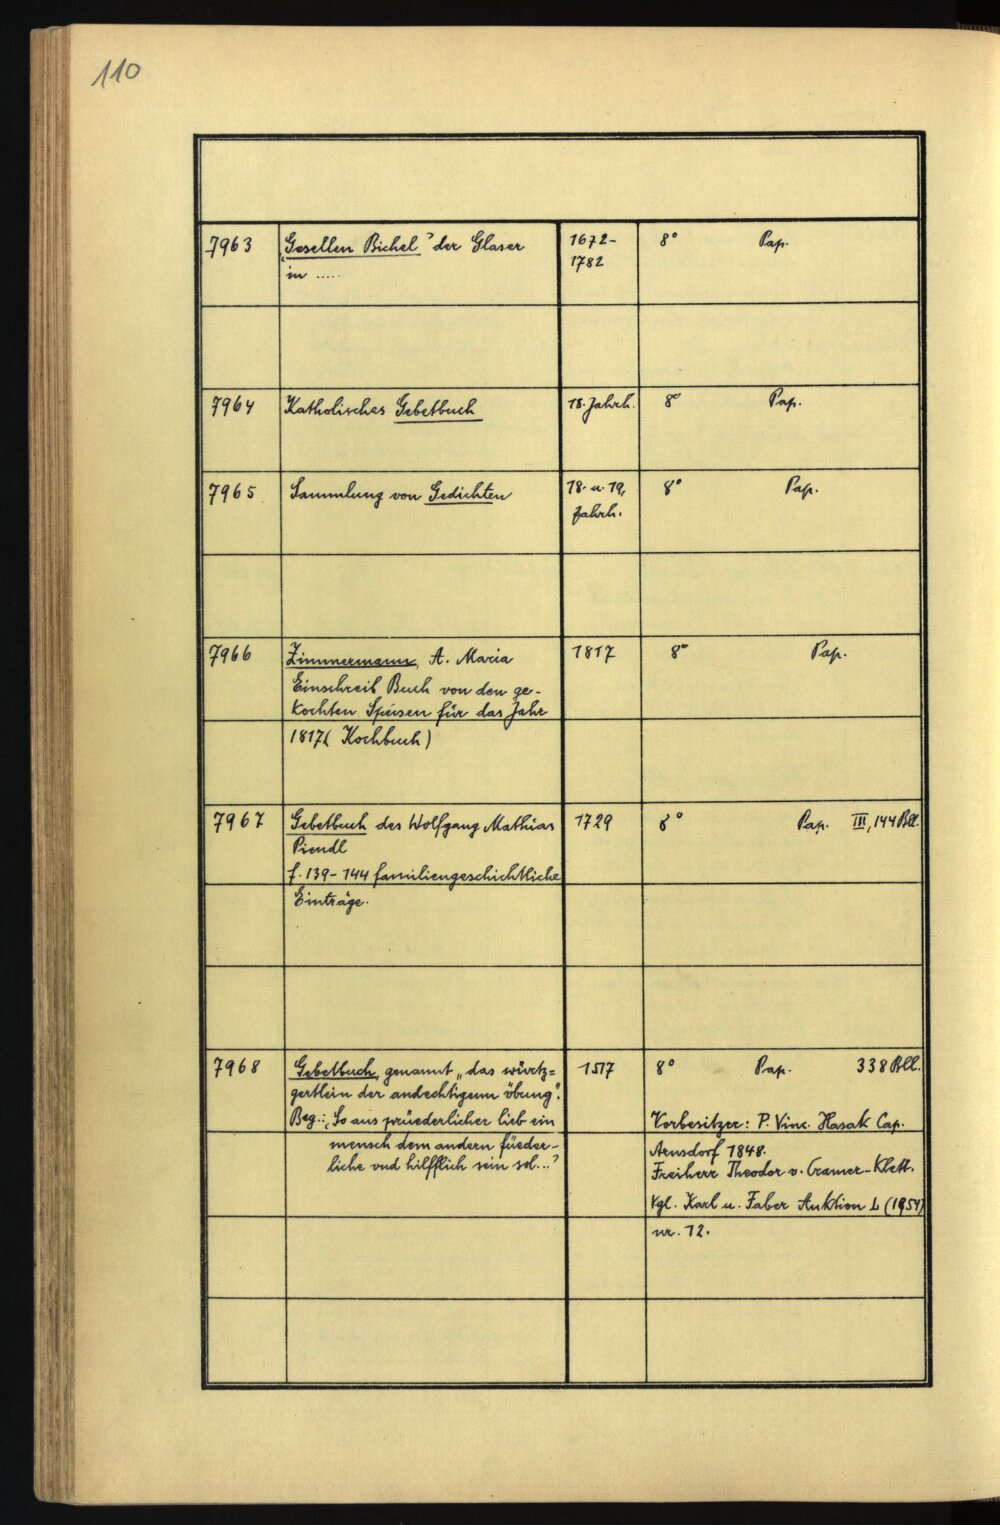 110
7963 „Gesellen Bichel" der Glaser 1672- 8° Pap.
in ..... 1782
7964 Katholisches Gebetbuch 18. Jahrh. 8° Pap.
7965 Sammlung von Gedichten 18. u. 19. 8° Pap.
Jahrh.
7966 Zimmermann, A. Maria 1817 8° Pap.
Einschreib Buch von den ge-
kochten Speisen für das Jahr
1817 (Kochbuch)
7967 Gebetbuch des Wolfgang Mathias 1729 8° Pap. III, 144 Bll.
Piendl
f. 139-144 familiengeschichtliche
Einträge.
7968 Gebetbuch, genannt „das würtz= 1517 8° Pap. 338 Bll.
gertlein der andechtigenn übung".
Beg.: „So aus prüederlicher lieb ein Vorbesitzer: P. Vinc. Hasak Cap.
mensch dem andern füeder- Arnsdorf 1848.
liche vnd hilfflich sein sol..." Freiherr Theodor v. Cramer-Klett.
Vgl. Karl u. Faber Auktion L (1954)
nr. 12.